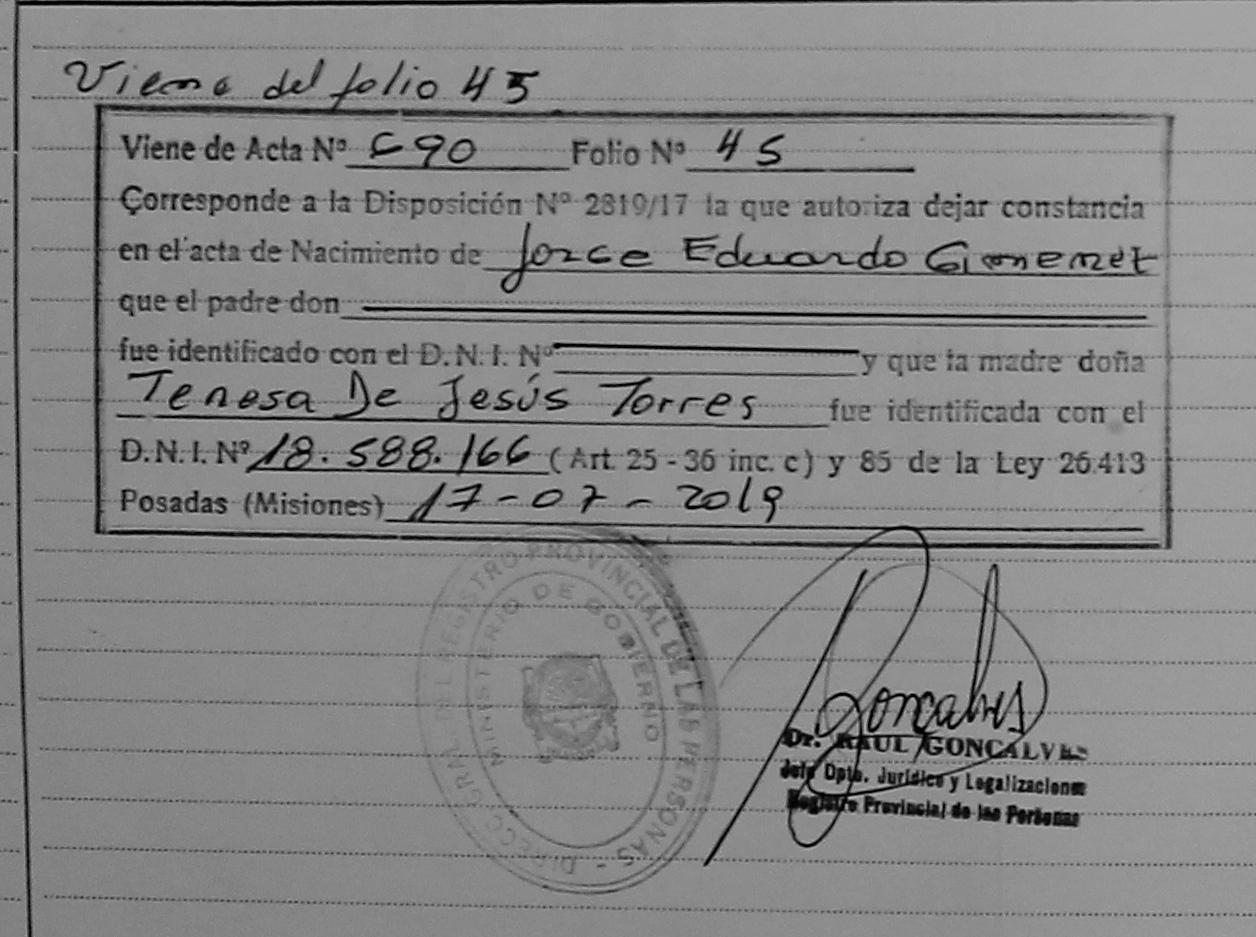 Viene del folio 45
Viene de Acta Nº 690 Folio Nº 45
Corresponde a la Disposición Nº 2819/17 la que autoriza dejar constancia
en el acta de Nacimiento de Jorge Eduardo Gimenez
que el padre don
fue identificado con el D.N.I. Nº y que la madre doña
Teresa De Jesús Torres fue identificada con el
D.N.I. Nº 18.588.166 (Art. 25 - 36 inc. c) y 85 de la Ley 26.413
Posadas (Misiones) 17-07-2019
DIRECC. GRAL. DEL REGISTRO PROVINCIAL DE LAS PERSONAS -
MINISTERIO DE GOBIERNO
Goncalves
Dr. RAUL GONCALVES
Jefe Dpto. Jurídico y Legalizaciones
Registro Provincial de las Personas